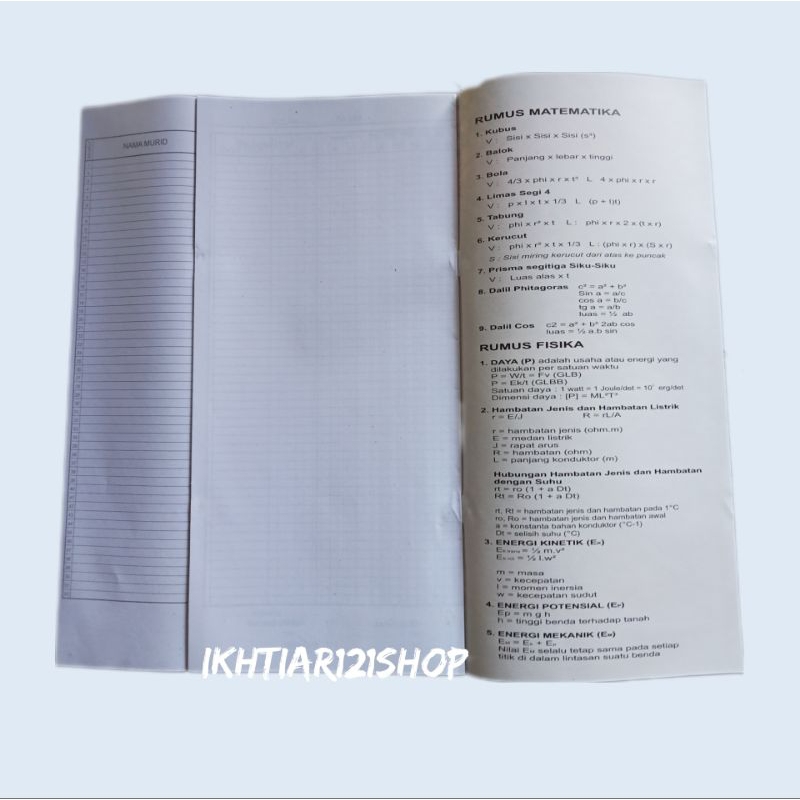 NAMA MURID
RUMUS MATEMATIKA
1. Kubus
V : Sisi x Sisi x Sisi (s³)
2. Balok
V : Panjang x lebar x tinggi
3. Bola
V : 4/3 x phi x r x t² L 4 x phi x r x r
4. Limas Segi 4
V : p x l x t x 1/3 L (p + l)t)
5. Tabung
V : phi x r² x t L : phi x r x 2 x (t x r)
6. Kerucut
V : phi x r² x t x 1/3 L : (phi x r) x (S x r)
S : Sisi miring kerucut dari atas ke puncak
7. Prisma segitiga Siku-Siku
V : Luas alas x t
8. Dalil Phitagoras c² = a² + b²
Sin a = a/c
cos a = b/c
tg a = a/b
luas = ½ ab
9. Dalil Cos c2 = a² + b² 2ab cos
luas = ½ a.b sin
RUMUS FISIKA
1. DAYA (P) adalah usaha atau energi yang
dilakukan per satuan waktu
P = W/t = Fv (GLB)
P = Ek/t (GLBB)
Satuan daya : 1 watt = 1 Joule/det = 10⁷ erg/det
Dimensi daya : [P] = ML²T³
2. Hambatan Jenis dan Hambatan Listrik
r = E/J R = rL/A
r = hambatan jenis (ohm.m)
E = medan listrik
J = rapat arus
R = hambatan (ohm)
L = panjang konduktor (m)
Hubungan Hambatan Jenis dan Hambatan
dengan Suhu
rt = ro (1 + a Dt)
Rt = Ro (1 + a Dt)
rt, Rt = hambatan jenis dan hambatan pada t°C
ro, Ro = hambatan jenis dan hambatan awal
a = konstanta bahan konduktor (°C-1)
Dt = selisih suhu (°C)
3. ENERGI KINETIK (Eₖ)
= ½ m.v²
= ½ I.w²
m = masa
v = kecepatan
I = momen inersia
w = kecepatan sudut
4. ENERGI POTENSIAL (Eₚ)
Ep = m g h
h = tinggi benda terhadap tanah
5. ENERGI MEKANIK (Eₘ)
Eₘ = Eₖ + Eₚ
Nilai Eₘ selalu tetap sama pada setiap
titik di dalam lintasan suatu benda
IKHTIAR121SHOP